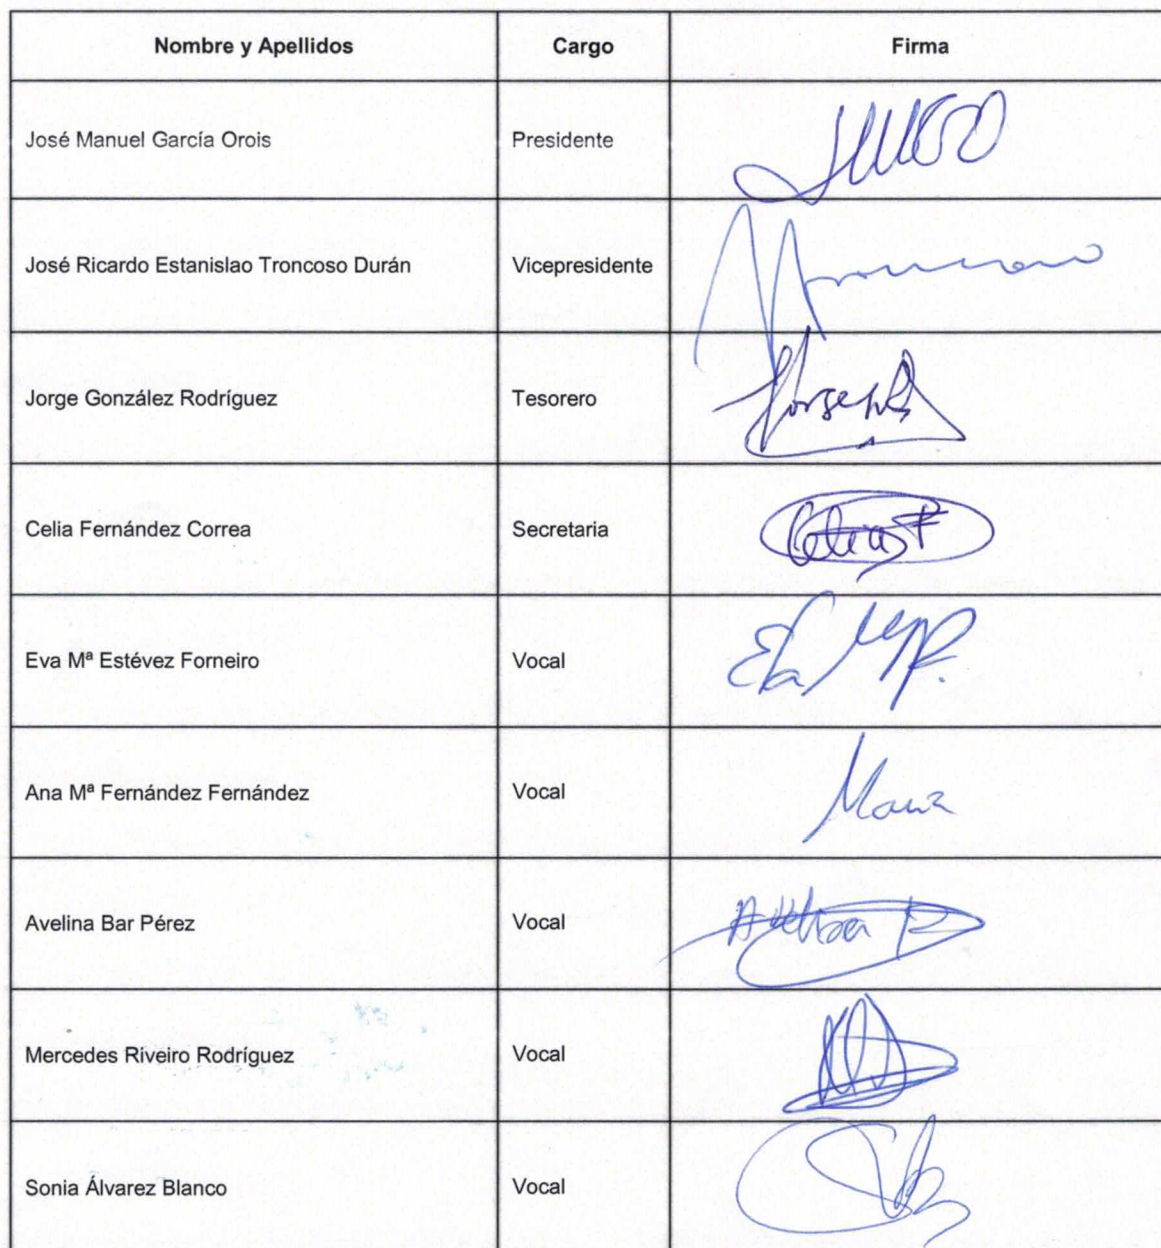 Nombre y Apellidos Cargo Firma
José Manuel García Orois Presidente
José Ricardo Estanislao Troncoso Durán Vicepresidente
Jorge González Rodríguez Tesorero
Celia Fernández Correa Secretaria
Eva Mª Estévez Forneiro Vocal
Ana Mª Fernández Fernández Vocal
Avelina Bar Pérez Vocal
Mercedes Riveiro Rodríguez Vocal
Sonia Álvarez Blanco Vocal